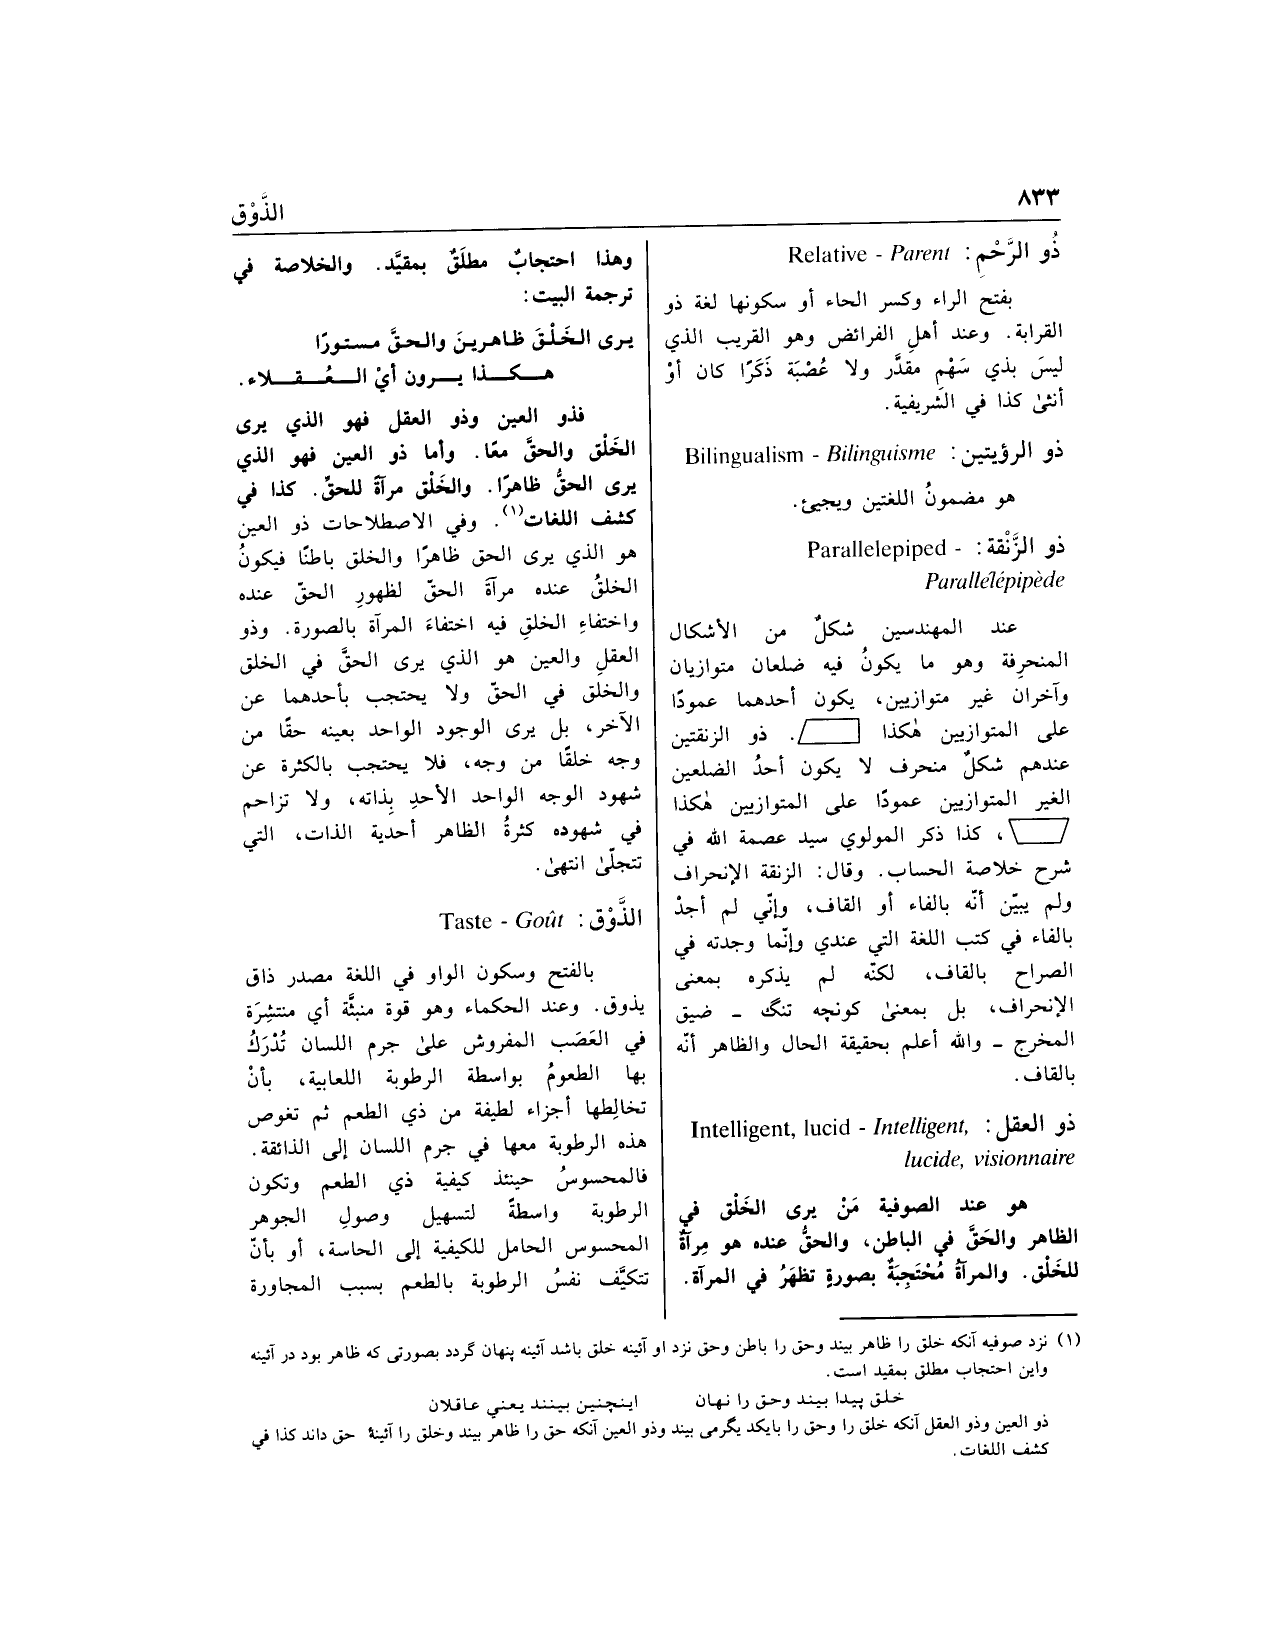 ٨٣٣
الذَّوْق
ذُو الرَّحْمِ: Relative - Parent
بفتح الراء وكسر الحاء أو سكونها لغة ذو
القرابة. وعند أهلِ الفرائض وهو القريب الذي
ليسَ بذي سَهْم مقدَّر ولا عُصْبَة ذَكَرًا كان أوْ
أنثىٰ كذا في الشَريفية.
ذو الرؤيتين: Bilingualism - Bilinguisme
هو مضمونُ اللغتين ويجيئ.
ذو الزَّنْقة: Parallelepiped -
Parallélépipède
عند المهندسين شكلٌ من الأشكال
المنحرِفة وهو ما يكونُ فيه ضلعان متوازيان
وآخران غير متوازيين، يكون أحدهما عمودًا
على المتوازيين هٰكذا . ذو الزنقتين
عندهم شكلٌ منحرف لا يكون أحدُ الضلعين
الغير المتوازيين عمودًا على المتوازيين هٰكذا
، كذا ذكر المولوي سيد عصمة الله في
شرح خلاصة الحساب. وقال: الزنقة الإنحراف
ولم يبيّن أنّه بالفاء أو القاف، وإنّي لم أجدْ
بالفاء في كتب اللغة التي عندي وإنّما وجدته في
الصراح بالقاف، لكنّه لم يذكره بمعنى
الإنحراف، بل بمعنىٰ كونچه تنگ ـ ضيق
المخرج ـ والله أعلم بحقيقة الحال والظاهر أنّه
بالقاف.
ذو العقل: Intelligent, lucid - Intelligent,
lucide, visionnaire
هو عند الصوفية مَنْ يرى الخَلْق في
الظاهر والحَقَّ في الباطن، والحقُّ عنده هو مِرآةٌ
للخَلْق. والمرآةُ مُحْتَجِبَةٌ بصورةٍ تظهَرُ في المرآة.
وهذا احتجابٌ مطلَقٌ بمقيَّد. والخلاصة في
ترجمة البيت:
يرى الخَلْقَ ظاهرينَ والحقَّ مستورًا
هكذا يرون أيْ العُقلاء.
فذو العين وذو العقل فهو الذي يرى
الخَلْق والحقَّ معًا. وأما ذو العين فهو الذي
يرى الحقُّ ظاهرًا. والخَلْق مرآةٌ للحقِّ. كذا في
كشف اللغات(١). وفي الاصطلاحات ذو العين
هو الذي يرى الحق ظاهرًا والخلق باطنًا فيكونُ
الخلقُ عنده مرآةَ الحقّ لظهورِ الحقّ عنده
واختفاءِ الخلقِ فيه اختفاءَ المرآة بالصورة. وذو
العقلِ والعين هو الذي يرى الحقَّ في الخلق
والخلق في الحقّ ولا يحتجب بأحدهما عن
الآخر، بل يرى الوجود الواحد بعينه حقًا من
وجه خلقًا من وجه، فلا يحتجب بالكثرة عن
شهود الوجه الواحد الأحدِ بِذاته، ولا تزاحم
في شهوده كثرةُ الظاهر أحدية الذات، التي
تتجلّىٰ انتهىٰ.
الذَّوْق: Taste - Goût
بالفتح وسكون الواو في اللغة مصدر ذاق
يذوق. وعند الحكماء وهو قوة منبثَّة أي منتشِرَة
في العَصَب المفروش علىٰ جرم اللسان تُدْرَكُ
بها الطعومُ بواسطة الرطوبة اللعابية، بأنْ
تخالِطها أجزاء لطيفة من ذي الطعم ثم تغوص
هذه الرطوبة معها في جرم اللسان إلى الذائقة.
فالمحسوسُ حينئذ كيفية ذي الطعم وتكون
الرطوبة واسطةً لتسهيل وصولِ الجوهر
المحسوس الحامل للكيفية إلى الحاسة، أو بأنّ
تتكيَّف نفسُ الرطوبة بالطعم بسبب المجاورة
(١) نزد صوفيه آنكه خلق را ظاهر بيند وحق را باطن وحق نزد او آئينه خلق باشد آئينه پنهان گردد بصورتي كه ظاهر بود در آئينه
واين احتجاب مطلق بمقيد است.
خلق پيدا بيند وحق را نهان اينچنين بينند يعني عاقلان
ذو العين وذو العقل آنكه خلق را وحق را بايكد يگرمى بيند وذو العين آنكه حق را ظاهر بيند وخلق را آئينۀ حق داند كذا في
كشف اللغات.